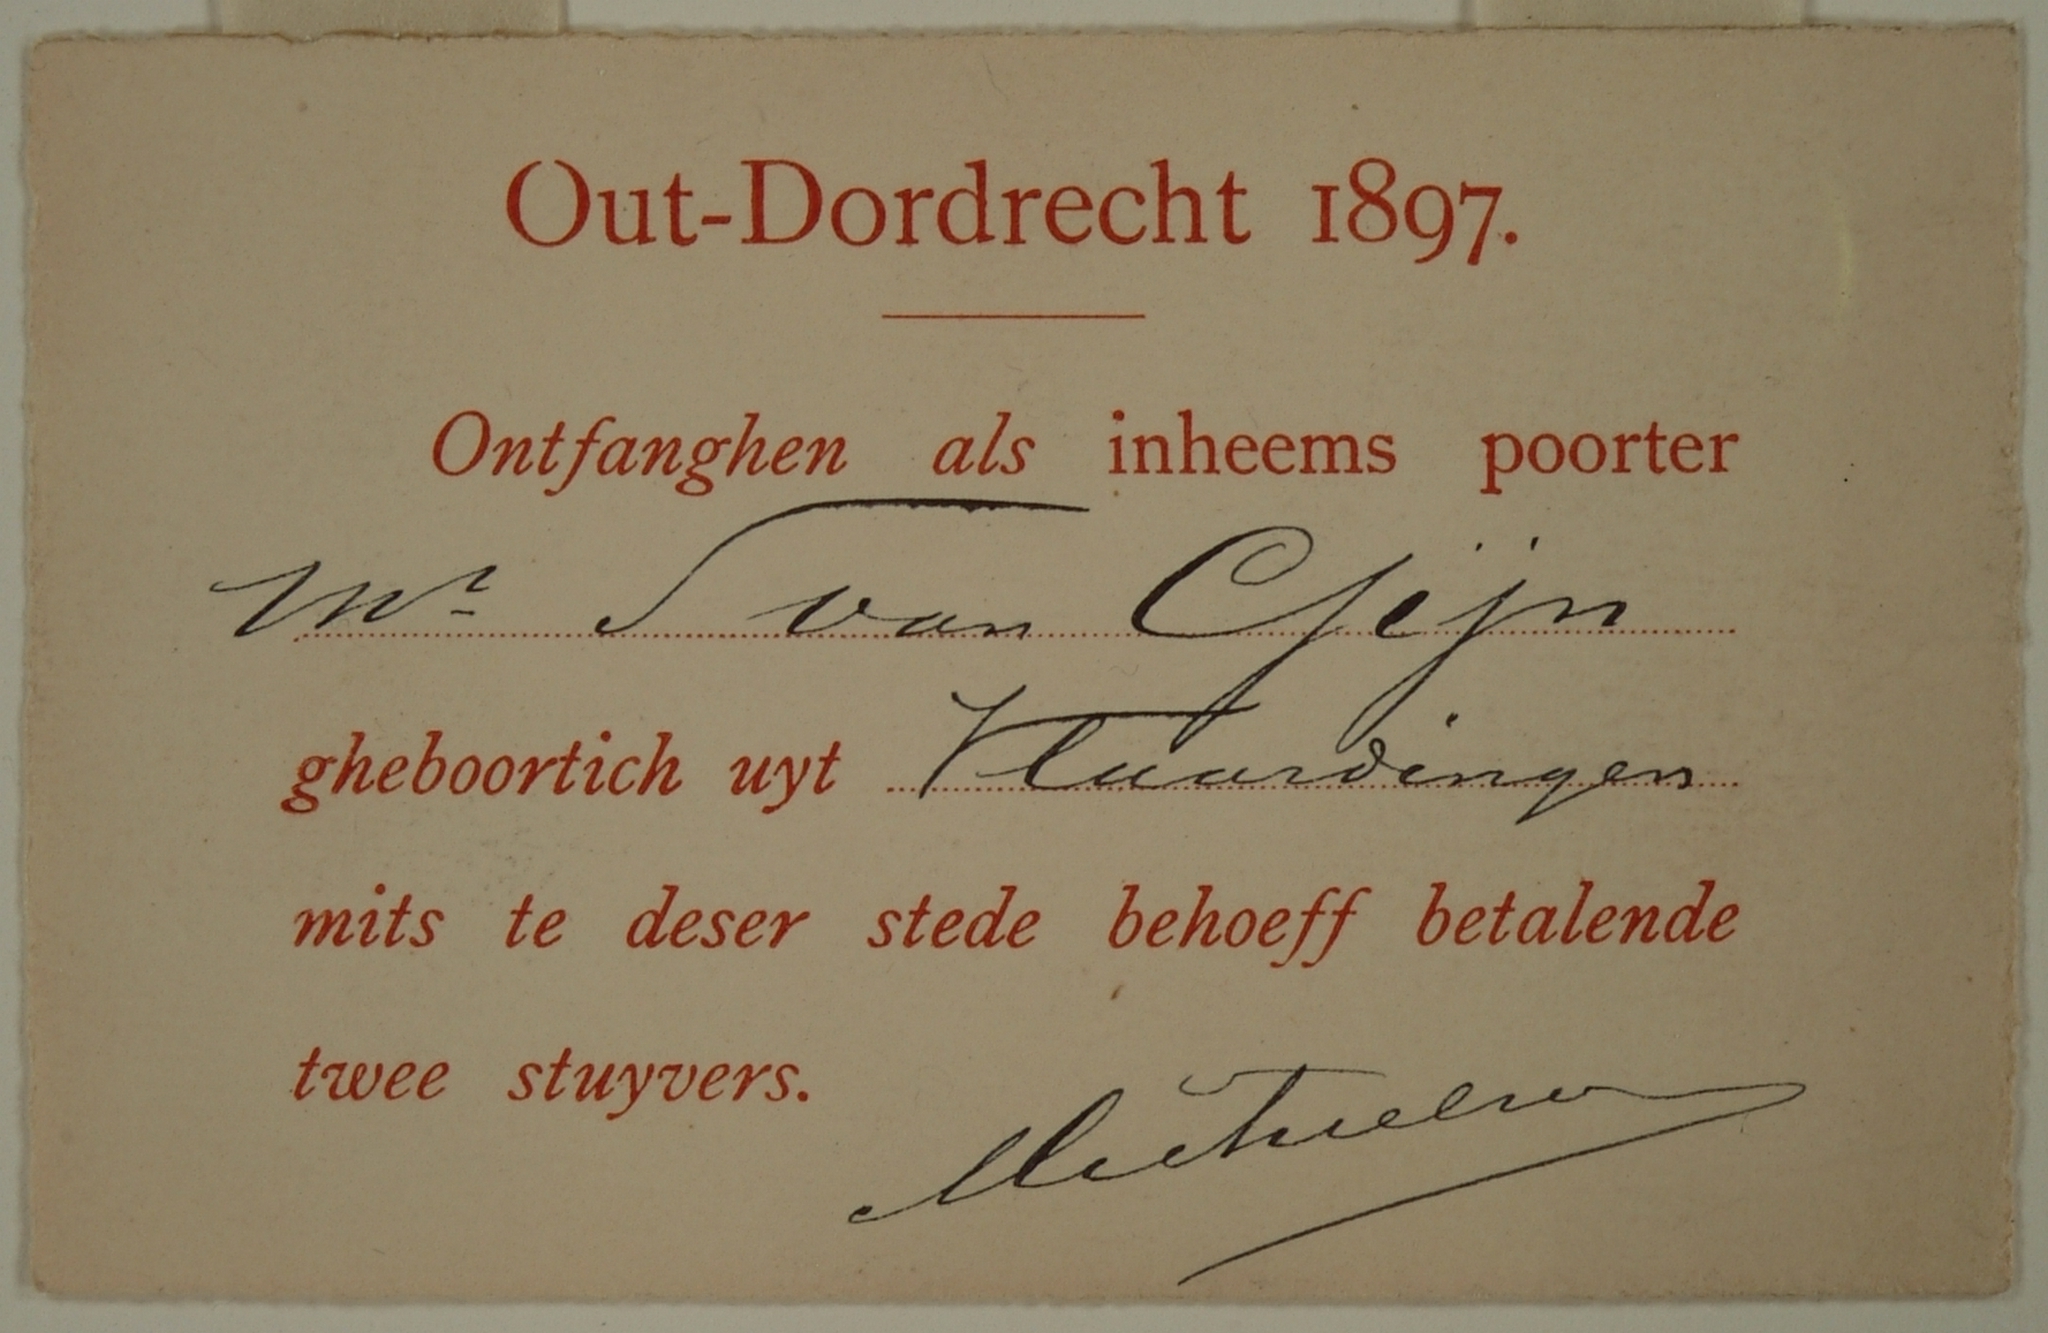 Out-Dordrecht 1897.
Ontfanghen als inheems poorter
Mr S van Gijn
gheboortich uyt Vlaardingen
mits te deser stede behoeff betalende
twee stuyvers.